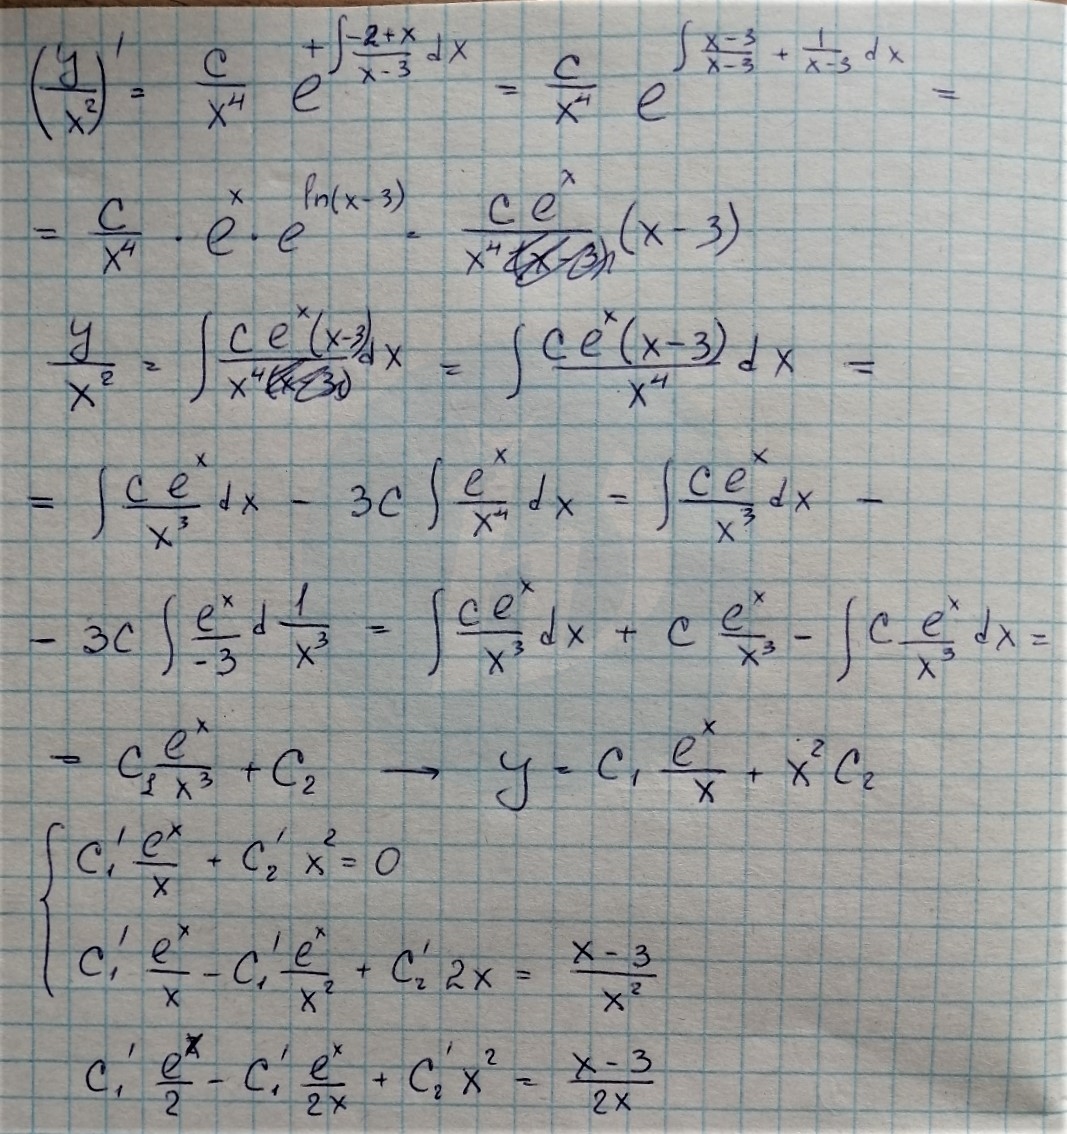 (y/x²)' = c/x⁴ e^(+∫ (-2+x)/(x-3) dx) = c/x⁴ e^(∫ (x-3)/(x-3) + 1/(x-3) dx) =
= c/x⁴ · eˣ · e^(ln(x-3)) = ceˣ/x⁴ (x-3)
y/x² = ∫ ceˣ(x-3)/x⁴ dx = ∫ ceˣ(x-3)/x⁴ dx =
= ∫ ceˣ/x³ dx - 3c ∫ eˣ/x⁴ dx = ∫ ceˣ/x³ dx -
- 3c ∫ eˣ/-3 d 1/x³ = ∫ ceˣ/x³ dx + c eˣ/x³ - ∫ c eˣ/x³ dx =
= c₁ eˣ/x³ + c₂ → y = c₁ eˣ/x + x² c₂
{ c₁' eˣ/x + c₂' x² = 0
c₁' eˣ/x - c₁' eˣ/x² + c₂' 2x = (x-3)/x²
c₁' eˣ/2 - c₁' eˣ/2x + c₂' x² = (x-3)/2x